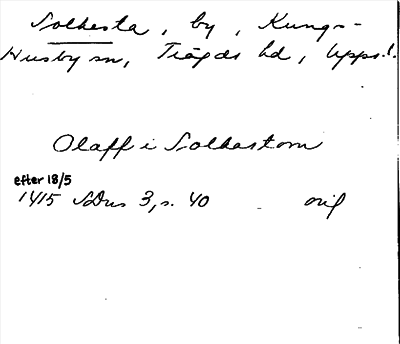 Solhesta, by, Kungs-
Husby sn, Trögds hd, Upps. l.
Olaff i Solhastom
efter 18/5
1415 SDns 3, s. 40 orig